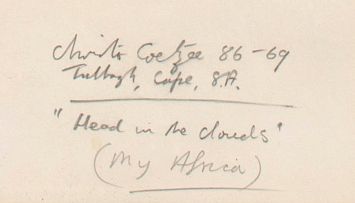 Christo Coetzee 86-69
Tulbagh, Cape, S.A.
"Head in the clouds"
(My Africa)